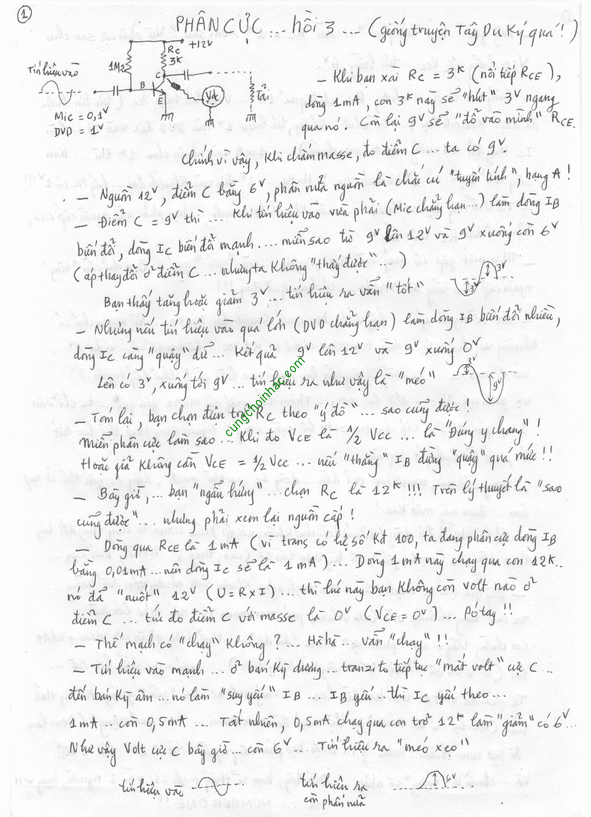 1
PHÂN CỰC ... hồi 3 ... (giống truyện Tây Du Ký quá!)
+12V
RC
3K
1M
Tín hiệu vào
B
C
E
VA
Tải
Mic = 0,1V
DVD = 1V
– Khi bạn xài RC = 3K (nối tiếp RCE),
dòng 1mA, con 3K này sẽ "hút" 3V ngang
qua nó. Còn lại 9V sẽ "đổ vào mình" RCE.
Chính vì vậy, khi chấm masse, đo điểm C ... ta có 9V.
– Nguồn 12V, điểm C bằng 6V, phân nửa nguồn là chắc cú "tuyến tính", hạng A!
– Điểm C = 9V thì ... Khi tín hiệu vào vừa phải (Mic chẳng hạn ...) làm dòng IB
biến đổi, dòng IC biến đổi mạnh .... miễn sao từ 9V lên 12V và 9V xuống còn 6V
(áp thay đổi ở điểm C ... nhưng ta không "thấy được" ...)
3V
3V
Bạn thấy tăng hoặc giảm 3V ... tín hiệu ra vẫn "tốt"
– Nhưng nếu tín hiệu vào quá lớn (DVD chẳng hạn) làm dòng IB biến đổi nhiều,
dòng IC càng "quậy" dữ ... Kết quả 9V lên 12V và 9V xuống 0V
3V
9V
Lên có 3V, xuống tới 9V ... tín hiệu ra như vậy là "méo"
cungchoinhac.com
– Tóm lại, bạn chọn điện trở RC theo "ý đồ" ... sao cũng được!
Miễn phân cực làm sao ... Khi đo VCE là 1/2 VCC ... là "Đúng y chang"!
Hoặc giả không cần VCE = 1/2 VCC ... nếu "thằng" IB đừng "quậy" quá mức!!
– Bây giờ, ... bạn "ngẫu hứng" ... chọn RC là 12K!!! Trên lý thuyết là "sao
cũng được" ... nhưng phải xem lại nguồn cấp!
– Dòng qua RCE là 1mA (vì trans có hệ số Kđ 100, ta đang phân cực dòng IB
bằng 0,01mA ... nên dòng IC sẽ là 1mA) ... Dòng 1mA này chạy qua con 12K..
nó đã "nuốt" 12V (U = R x I) ... thì lúc này bạn không còn volt nào ở
điểm C ... tức đo điểm C với masse là 0V (VCE = 0V) ... Bó tay!!
– Thế mạch có "chạy" không? ... Hà hà .. vẫn "chạy"!!
– Tín hiệu vào mạnh ... ở bán kỳ dương ... tranzito tiếp tục "mất volt" cực C ...
đến bán kỳ âm ... nó làm "suy yếu" IB ... IB yếu .. thì IC yếu theo ...
1mA .. còn 0,5mA .... Tất nhiên, 0,5mA chạy qua con trở 12K làm "giảm" có 6V...
Như vậy Volt cực C bây giờ .. còn 6V ... Tín hiệu ra "méo xẹo"
tín hiệu vào
tín hiệu ra
còn phân nửa
6V